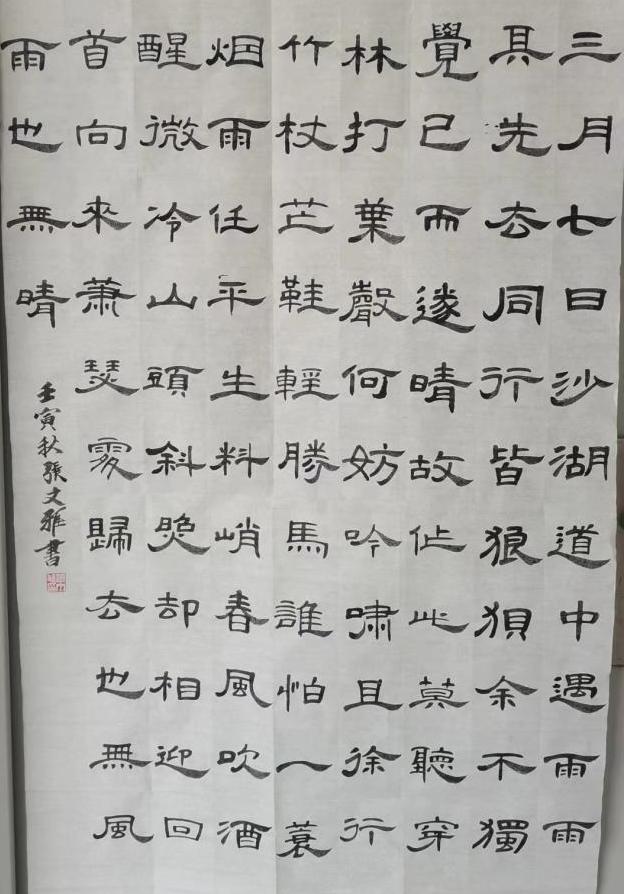 三月七日沙湖道中遇雨雨
具先去同行皆狼狽余不獨
覺已而遂晴故作此莫聽穿
林打葉聲何妨吟嘯且徐行
竹杖芒鞋輕勝馬誰怕一蓑
烟雨任平生料峭春風吹酒
醒微冷山頭斜照却相迎回
首向來蕭瑟處歸去也無風
雨也無晴
壬寅秋張文雅書